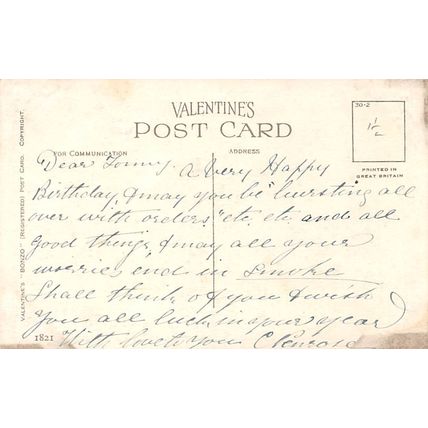 30-2
1/-
VALENTINE'S
POST CARD
FOR COMMUNICATION
ADDRESS
PRINTED IN
GREAT BRITAIN
VALENTINE'S "BONZO" (REGISTERED) POST CARD. COPYRIGHT.
Dear Tommy. A Very Happy
Birthday, & may you be "bursting all
over with orders" etc. etc. and all
good things & may all your
worries end in smoke
Shall think of you & wish
You all luck in your year
With love to you
1821